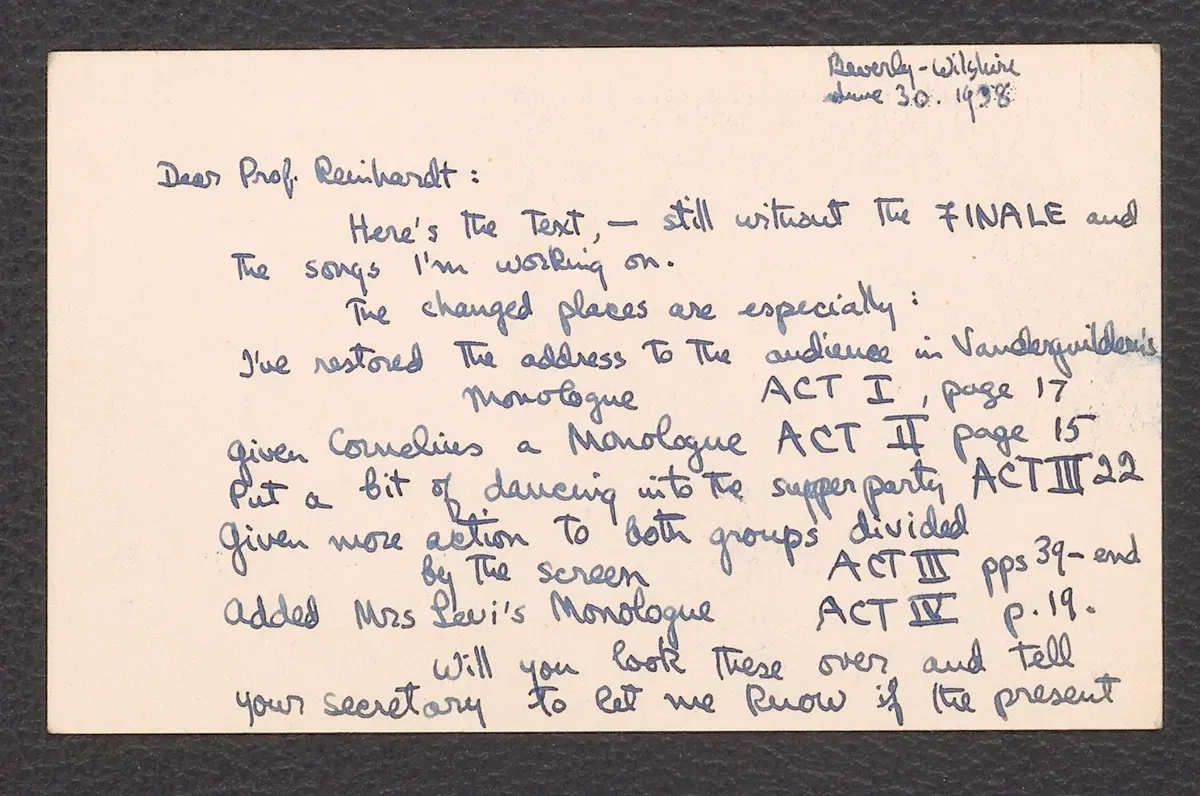 Beverly-Wilshire
June 30. 1938
Dear Prof. Reinhardt:
Here's the Text, — still without the FINALE and
the songs I'm working on.
The changed places are especially:
I've restored the address to the audience in Vanderguildern's
Monologue ACT I, page 17
given Cornelius a Monologue ACT II page 15
Put a bit of dancing into the supper party ACT III 22
Given more action to both groups divided
by the screen ACT III pps 39-end
Added Mrs Levi's Monologue ACT IV p.19.
Will you look these over and tell
your secretary to let me know if the present